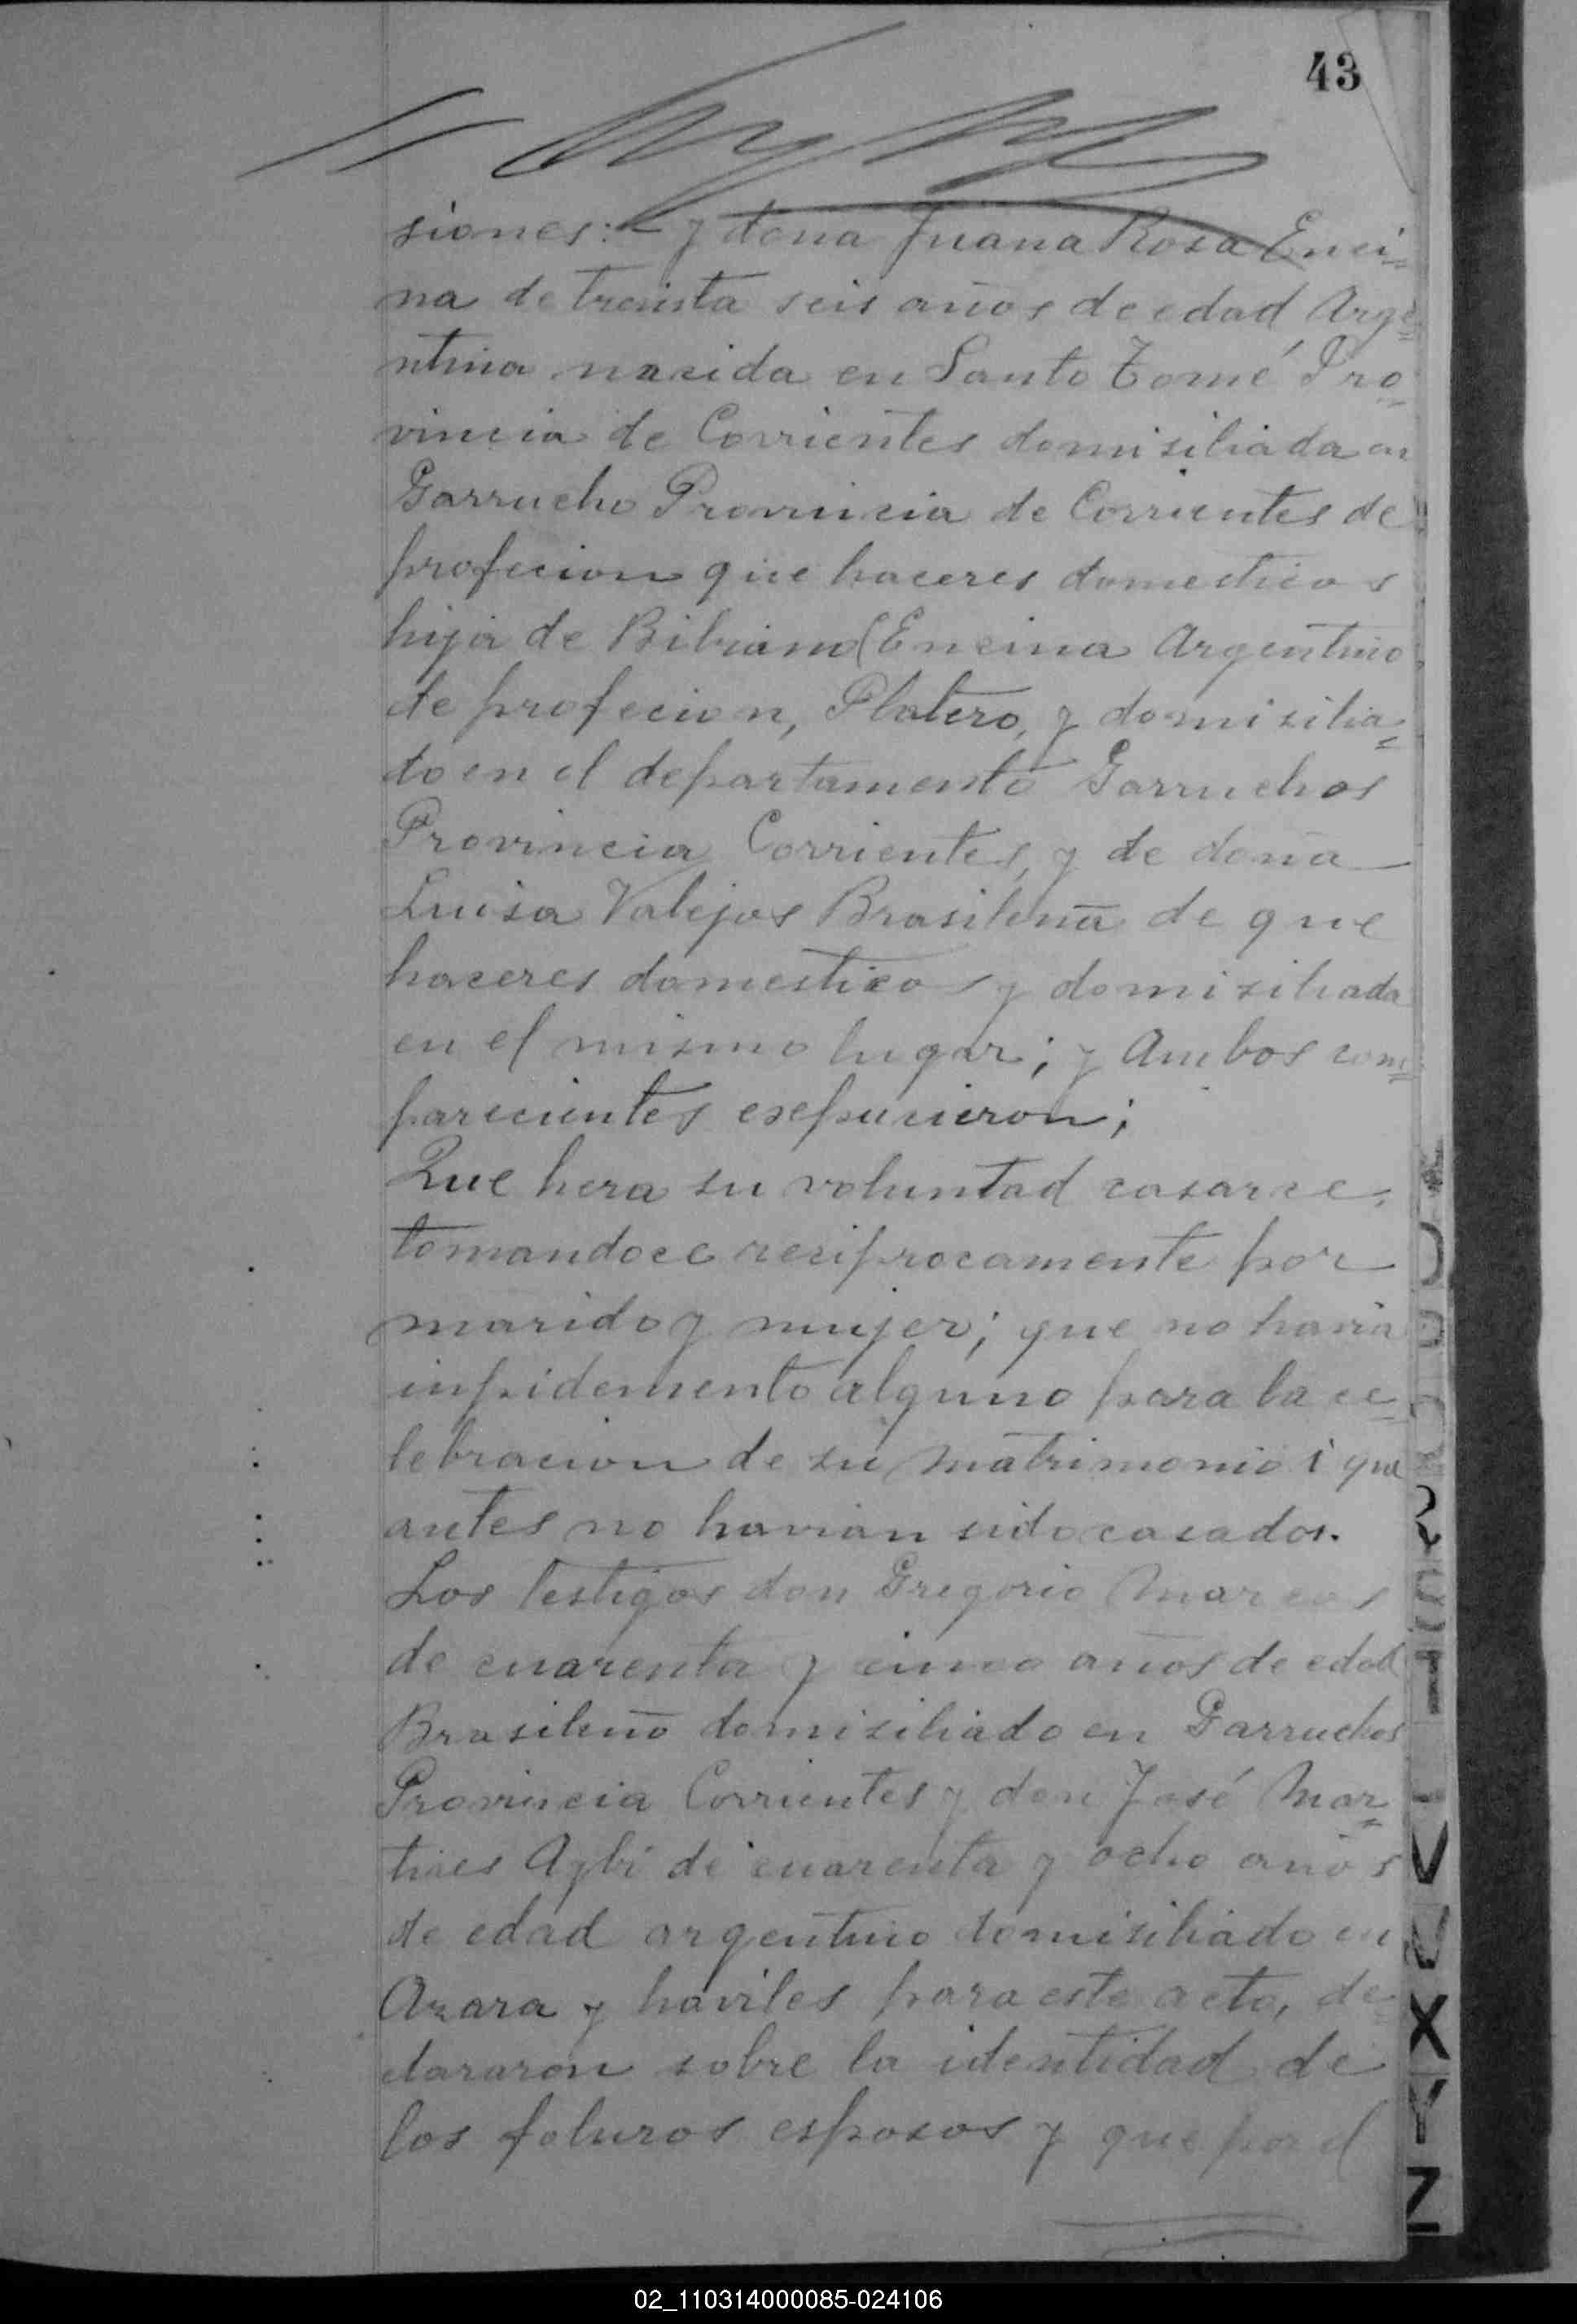 43
siones: y doña Juana Rosa Enci=
na de treinta seis años de edad Arge=
ntina nacida en Santo Tomé Pro=
vincia de Corrientes domisiliada en
Garrucho Provincia de Corrientes de
profecion que haceres domesticos
hija de Bibiano Encina Argentino
de profecion, Platero, y domisilia=
do en el departamento Garruchos
Provincia Corrientes, y de doña
Luisa Valejos Brasileña de que
haceres domesticos y domisiliada
en el mismo lugar; y Ambos com=
parecientes esepucieron;
Que hera su voluntad casarce,
tomandoce reciprocamente por
marido y mujer; que no havia
inpidemento alguno para la ce=
lebracion de su matrimonio i que
antes no havian sido casados.
Los testigos don Gregorio Marcos
de cuarenta y cinco años de edad
Brasileño domisiliado en Garruchos
Provincia Corrientes y don José Mar=
tines de cuarenta y ocho años
de edad argentino domisiliado en
Azara y haviles para este acto, de=
clararon sobre la identidad de
los foturos esposos y que por el
V
X
Y
Z
02_110314000085-024106